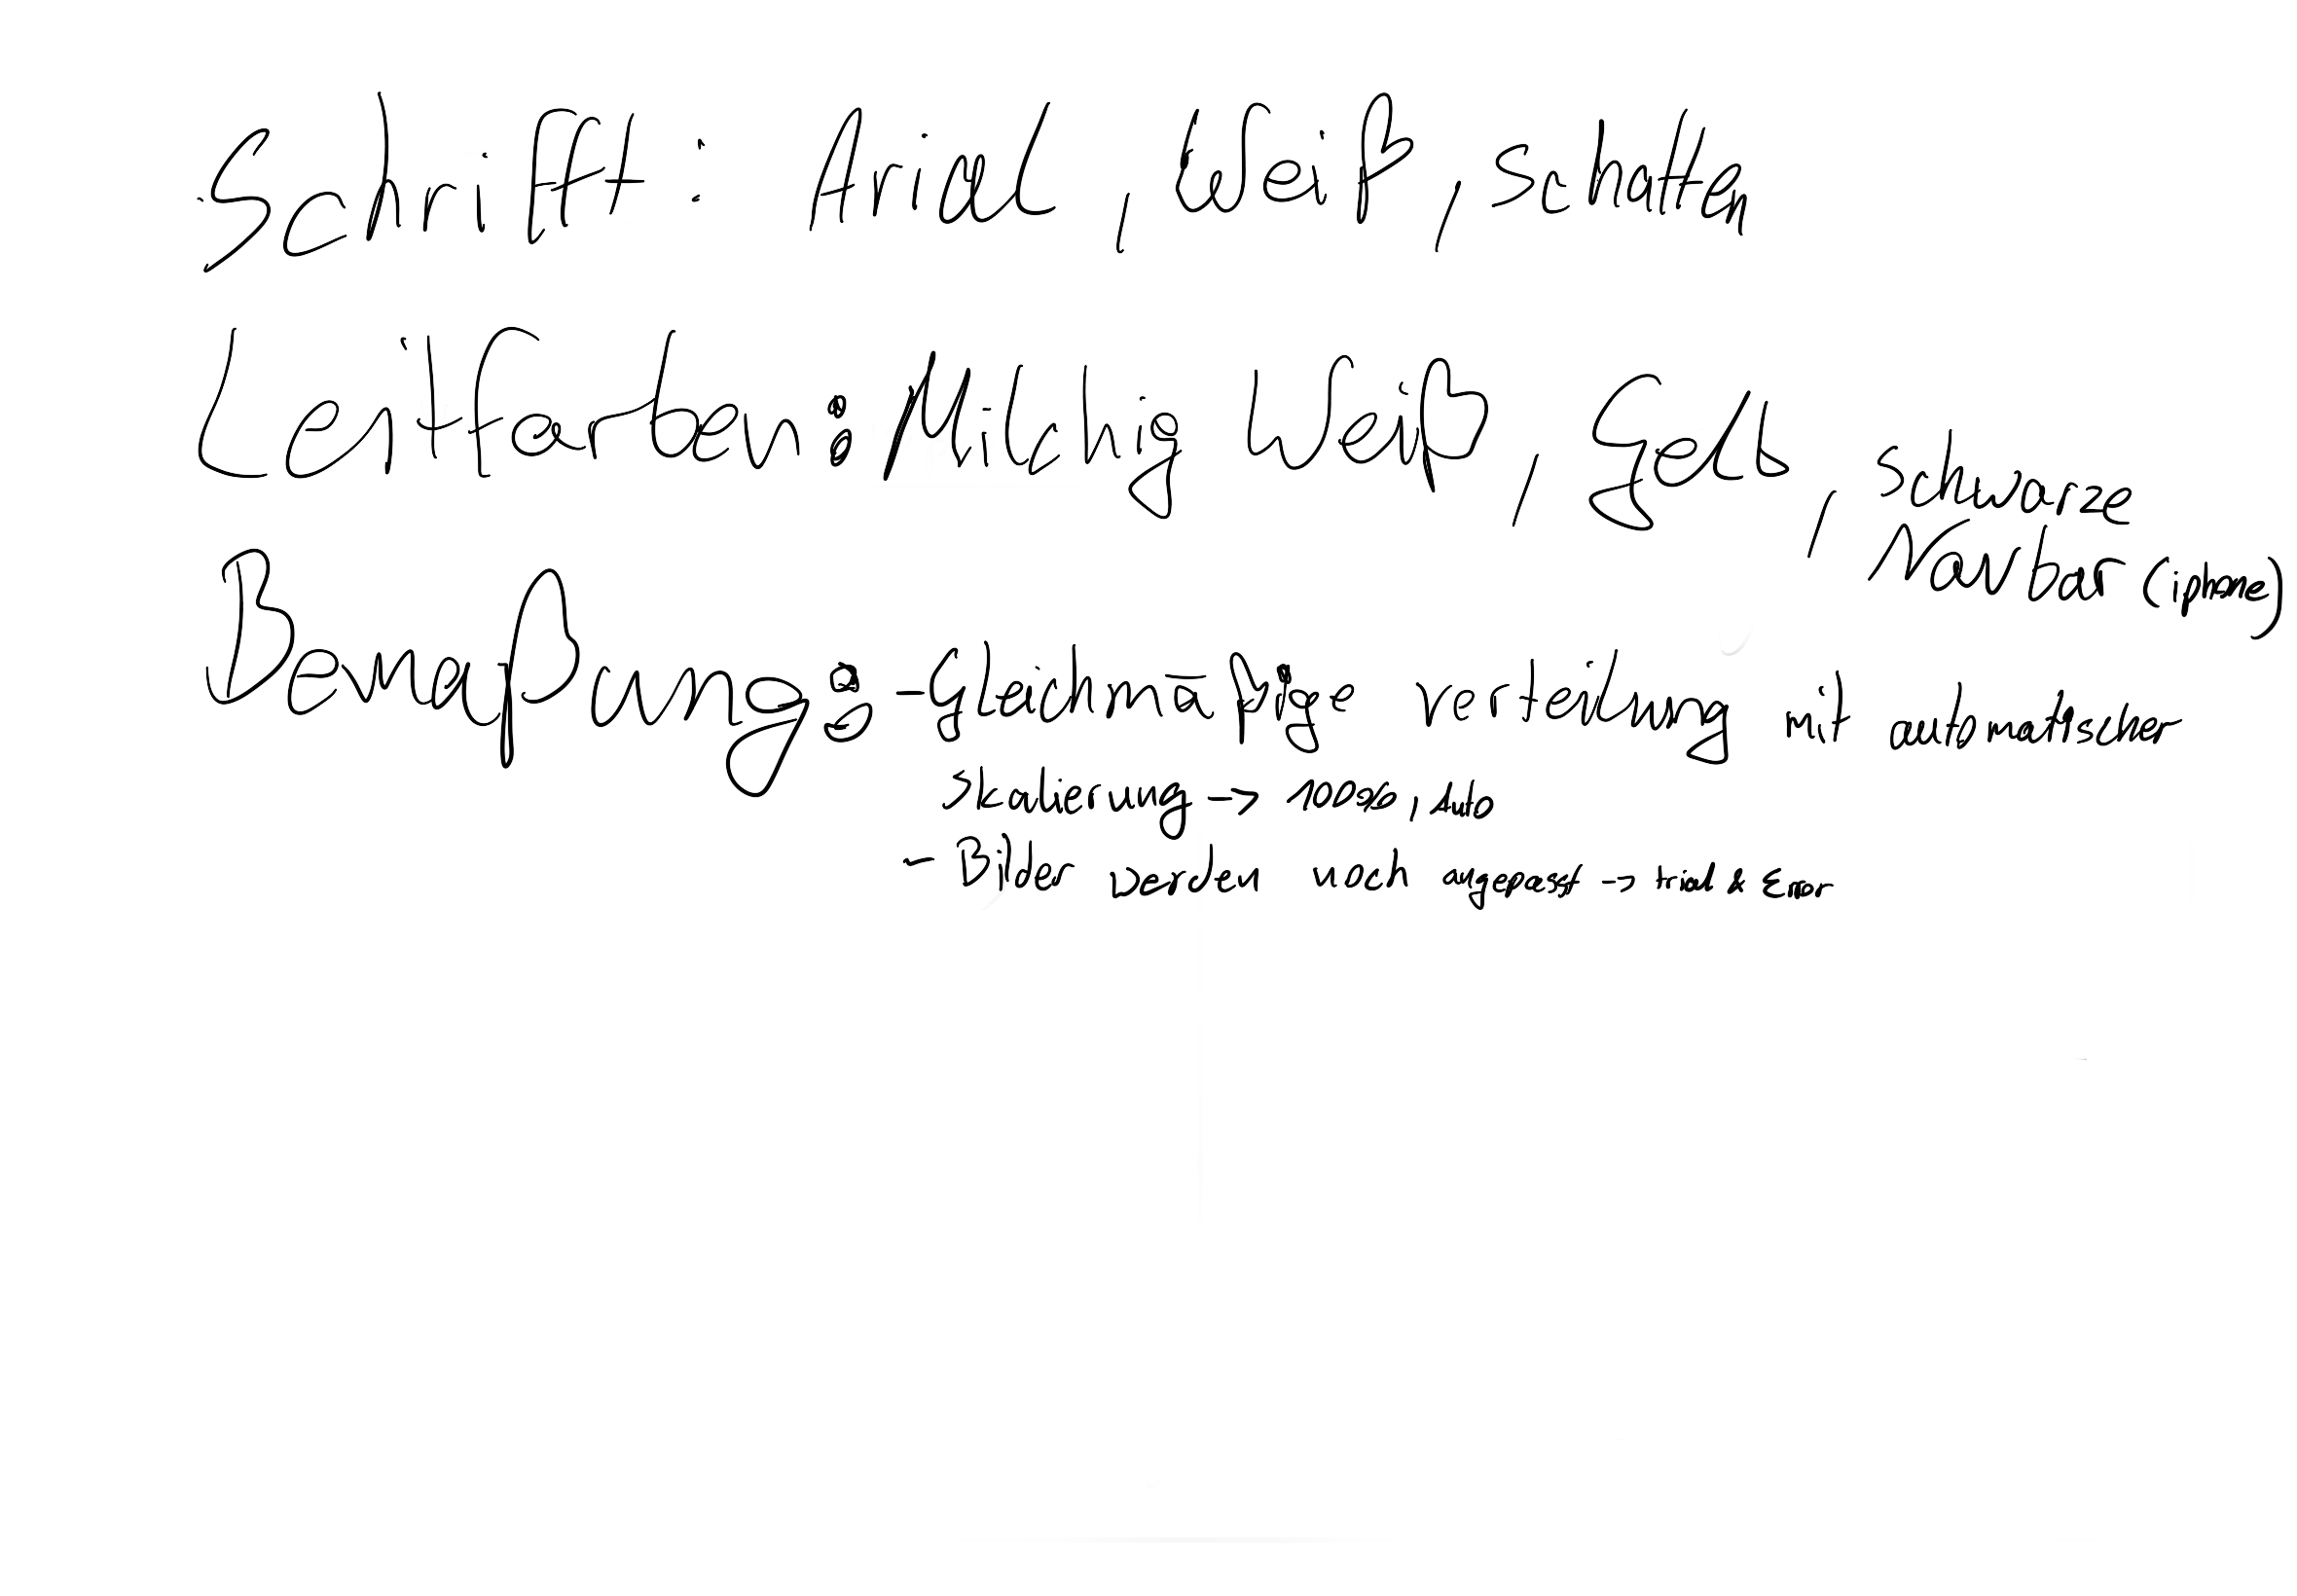 Schrifft: Arial, Weiß, schatten
Leitfarben: Milchig Weiß, Gelb, schwarze
Navbar (iphone)
Bemaßung: - Gleichmäßige verteilung mit automatischer
Skalierung -> 100%, Auto
- Bilder werden noch angepasst -> trial & Error